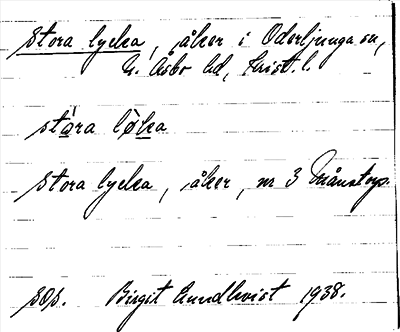 Stora lycka, åker i Oderljunga sn,
N. Åsbo hd, Krist. l.
stòra lỳka
Stora lycka, åker, nr 3 Månstorp.
sOp. Birgit Lundkvist 1938.